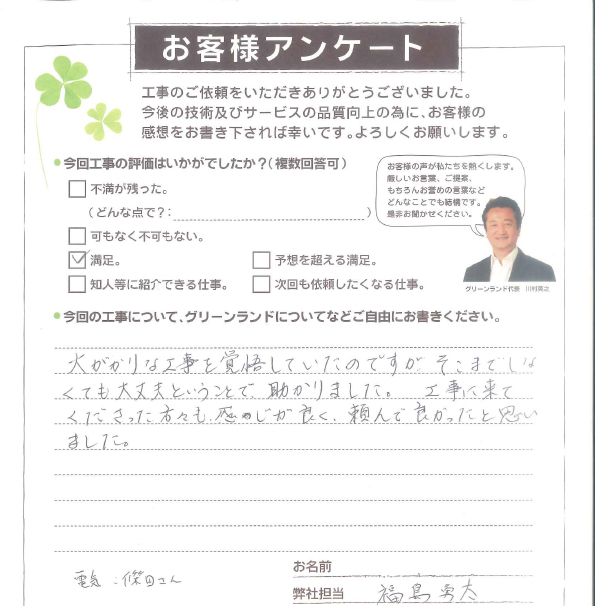 お客様アンケート
工事のご依頼をいただきありがとうございました。
今後の技術及びサービスの品質向上の為に、お客様の
感想をお書き下されば幸いです。よろしくお願いします。
●今回工事の評価はいかがでしたか？（複数回答可）
不満が残った。
（どんな点で？：　）
可もなく不可もない。
満足。
予想を超える満足。
知人等に紹介できる仕事。
次回も依頼したくなる仕事。
お客様の声が私たちを熱くします。
厳しいお言葉、ご提案、
もちろんお誉めの言葉など
どんなことでも結構です。
是非お聞かせください。
グリーンランド代表　川村英之
●今回の工事について、グリーンランドについてなどご自由にお書きください。
大がかりな工事を覚悟していたのですが そこまでしな
くても大丈夫ということで、助かりました。 工事に来て
くださった方々も、感じが良く、頼んで良かったと思い
ました。
電気：篠田さん
お名前
弊社担当　福島 勇太